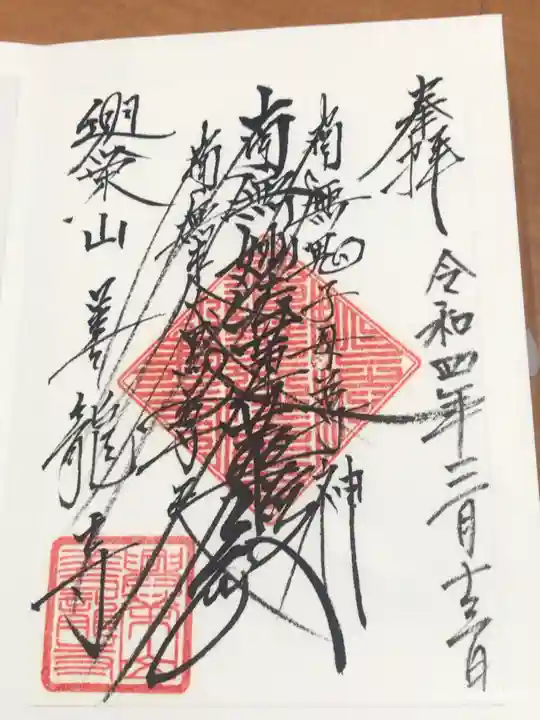 奉拝
令和四年三月十三日
南無鬼子母尊神
南無妙法蓮華経
南無走大黒尊天
山 善龍寺